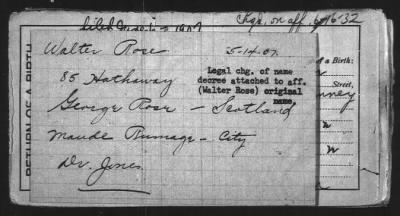 Chga. on aff. 6/16-32
filed
Walter Rose 5-14-07
Legal chg. of name
decree attached to aff.
(Walter Rose) original
name.
85 Hathaway
George Rose - Scotland
Maude Rumage - City
Dr. Jones
RETURN OF A BIRTH
of a Birth:
Street,